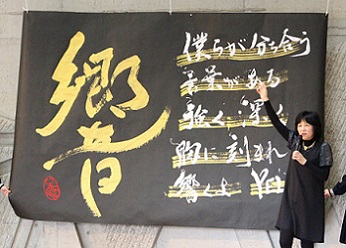 響
僕らが分ち合う
言葉がある
強く 深く
胸に刻まれ
響くよ